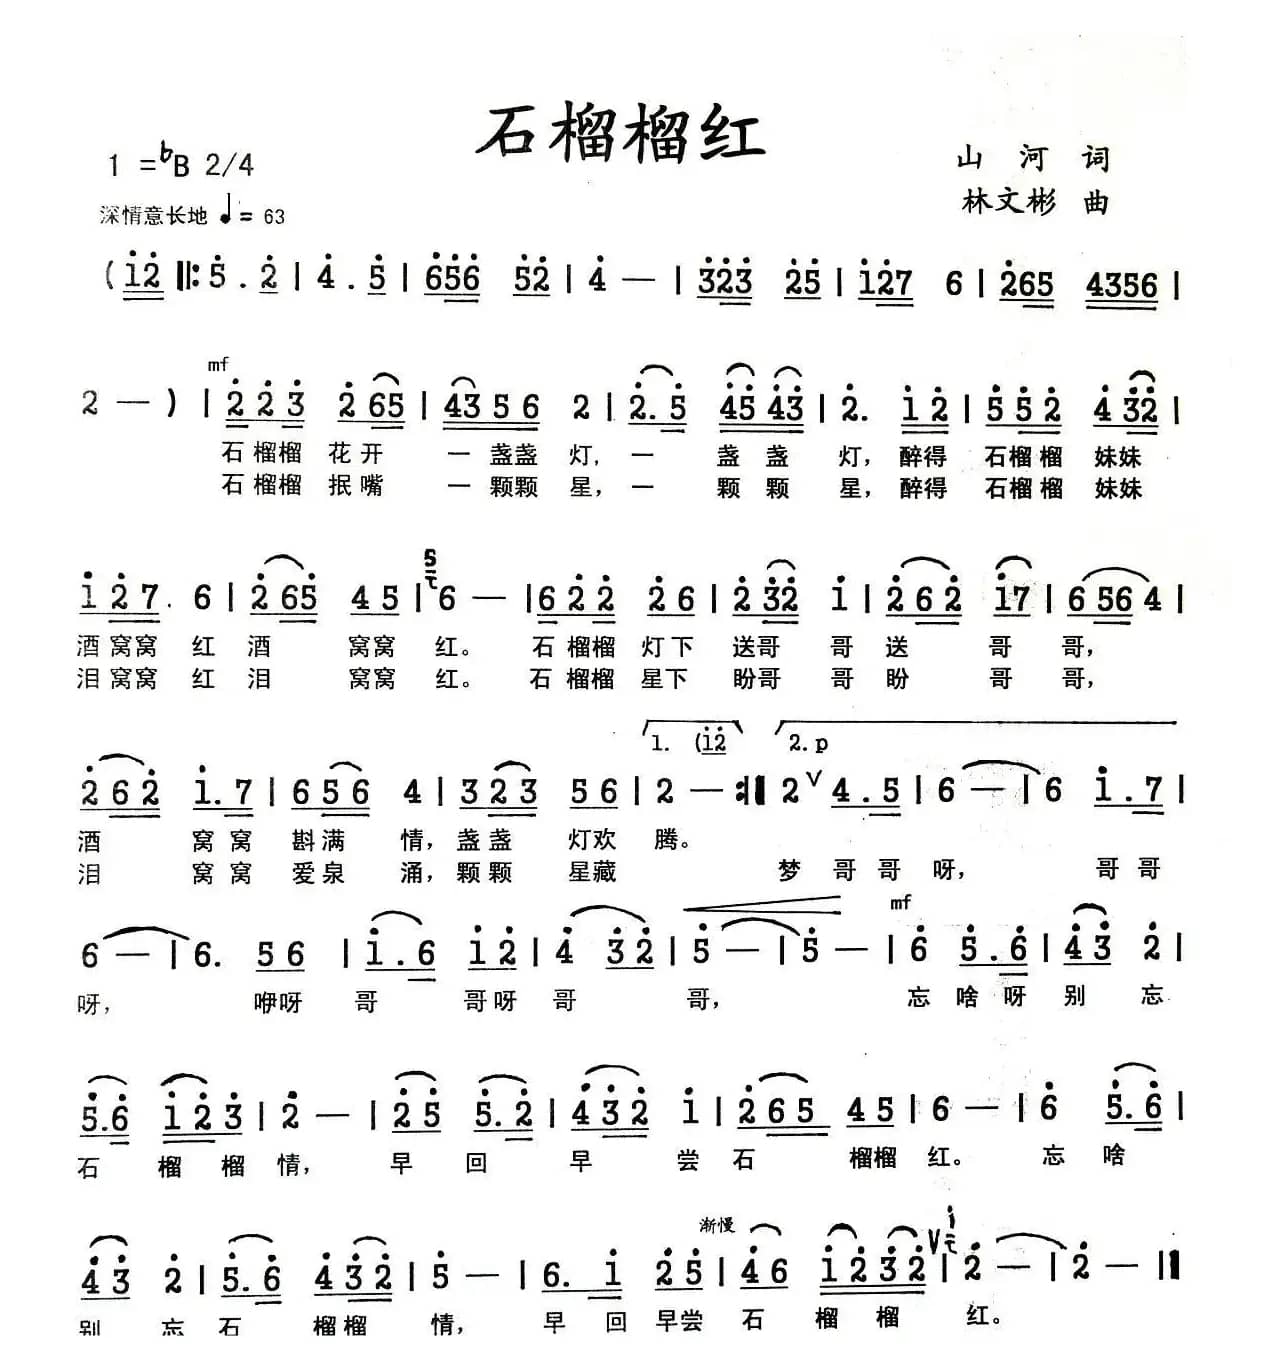 石榴榴红
1 =♭B 2/4
山 河 词
深情意长地 ♩= 63
林文彬 曲
(i̇2̇ ‖: 5̇ . 2̇ | 4̇ . 5̇ | 6̇5̇6̇ 5̇2̇ | 4̇ — | 3̇2̇3̇ 2̇5̇ | i̇2̇7 6 | 2̇65 4356 |
mf
2 — ) | 2̇ 2̇ 3̇ 2̇ 65 | 43 5 6 2 | 2̇. 5̇ 4̇5̇ 4̇3̇ | 2̇. i̇ 2̇ | 5̇ 5̇ 2̇ 4̇ 3̇2̇ |
石 榴榴 花 开 一 盏盏 灯, 一 盏 盏 灯, 醉得 石榴 榴 妹妹
石 榴榴 抿 嘴 一 颗颗 星, 一 颗 颗 星, 醉得 石榴 榴 妹妹
5
i̇ 2̇ 7. 6 | 2̇ 65̇ 4 5 | 6 — | 6 2̇ 2̇ 2̇ 6 | 2̇ 3̇2̇ i̇ | 2̇ 6 2̇ i̇7 | 6 56 4 |
酒 窝窝 红 酒 窝窝 红。 石 榴榴 灯下 送哥 哥 送 哥 哥,
泪 窝窝 红 泪 窝窝 红。 石 榴榴 星下 盼哥 哥 盼 哥 哥,
1. (i̇2̇ 2. p
2̇ 6 2̇ i̇. 7 | 6 5 6 4 | 3 2 3 5 6 | 2 — :‖ 2 ∨ 4 . 5 | 6 — | 6 i̇ . 7 |
酒 窝 窝 斟满 情, 盏盏 灯欢 腾。
泪 窝 窝 爱泉 涌, 颗颗 星藏 梦 哥 哥 呀, 哥 哥
mf
6 — | 6. 5 6 | i̇ . 6 i̇ 2̇ | 4̇ 3̇ 2̇ | 5̇ — | 5̇ — | 6̇ 5̇ . 6̇ | 4̇ 3̇ 2̇ |
呀, 咿呀 哥 哥呀 哥 哥, 忘 啥 呀 别 忘
5̇.6̇ i̇ 2̇ 3̇ | 2̇ — | 2̇ 5̇ 5̇. 2̇ | 4̇ 3̇ 2̇ i̇ | 2̇ 6 5 4 5 | 6 — | 6̇ 5̇. 6̇ |
石 榴 榴 情, 早 回 早 尝 石 榴榴 红。 忘 啥
渐慢 i̇
4̇ 3̇ 2̇ | 5̇. 6̇ 4̇ 3̇ 2̇ | 5̇ — | 6. i̇ 2̇ 5̇ | 4̇ 6 i̇ 2̇ 3̇ 2̇ ∨ | 2̇ — | 2̇ — ‖
别 忘 石 榴榴 情, 早 回 早尝 石 榴 榴 红。